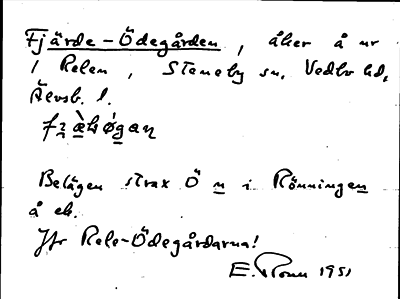 Fjärde-Ödegården, åker å nr
1 Relen, Steneby sn, Vedbo hd,
Älvsb. l.
Belägen strax Ö n i Rönningen
å ek.
Jfr Rele-Ödegårdarna!
E. Ronn 1951